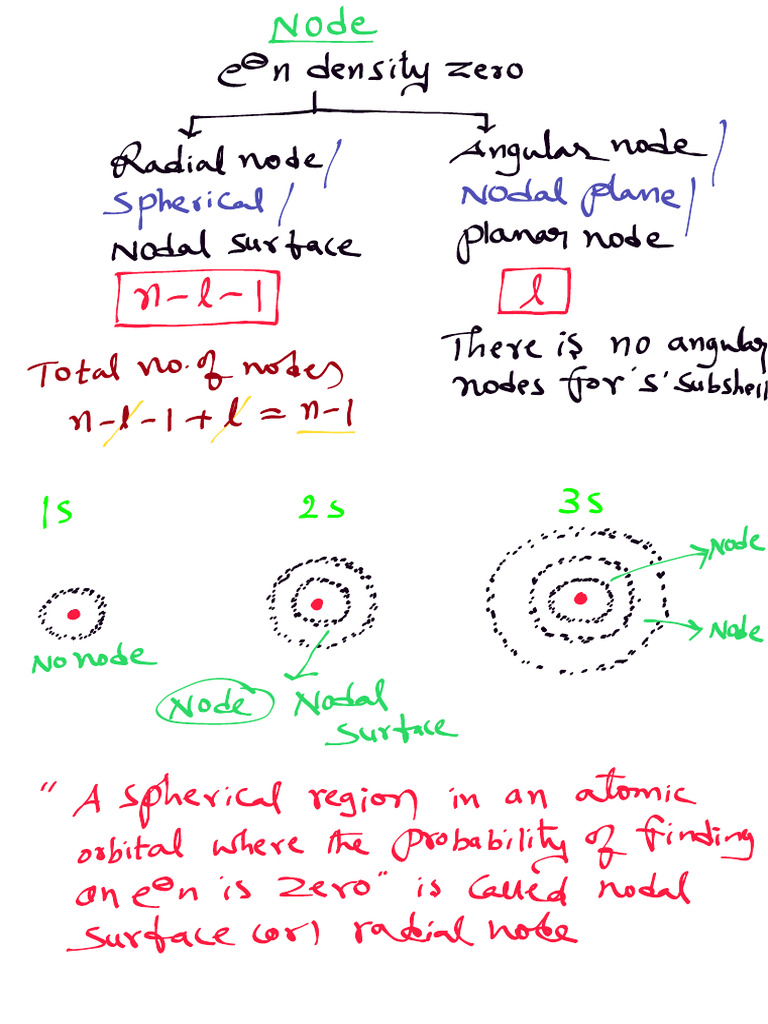 Node
e⊖n density zero
Radial node/
Spherical/
Nodal surface
n-l-1
Angular node/
Nodal plane/
planar node
l
There is no angular
nodes for 's' subshell
Total no. of nodes
n-l-1+l = n-1
1s
2s
3s
Node
Node
No node
Node
Nodal
surface
"A spherical region in an atomic
orbital where the probability of finding
an e⊖n is zero" is called nodal
surface (or) radial node